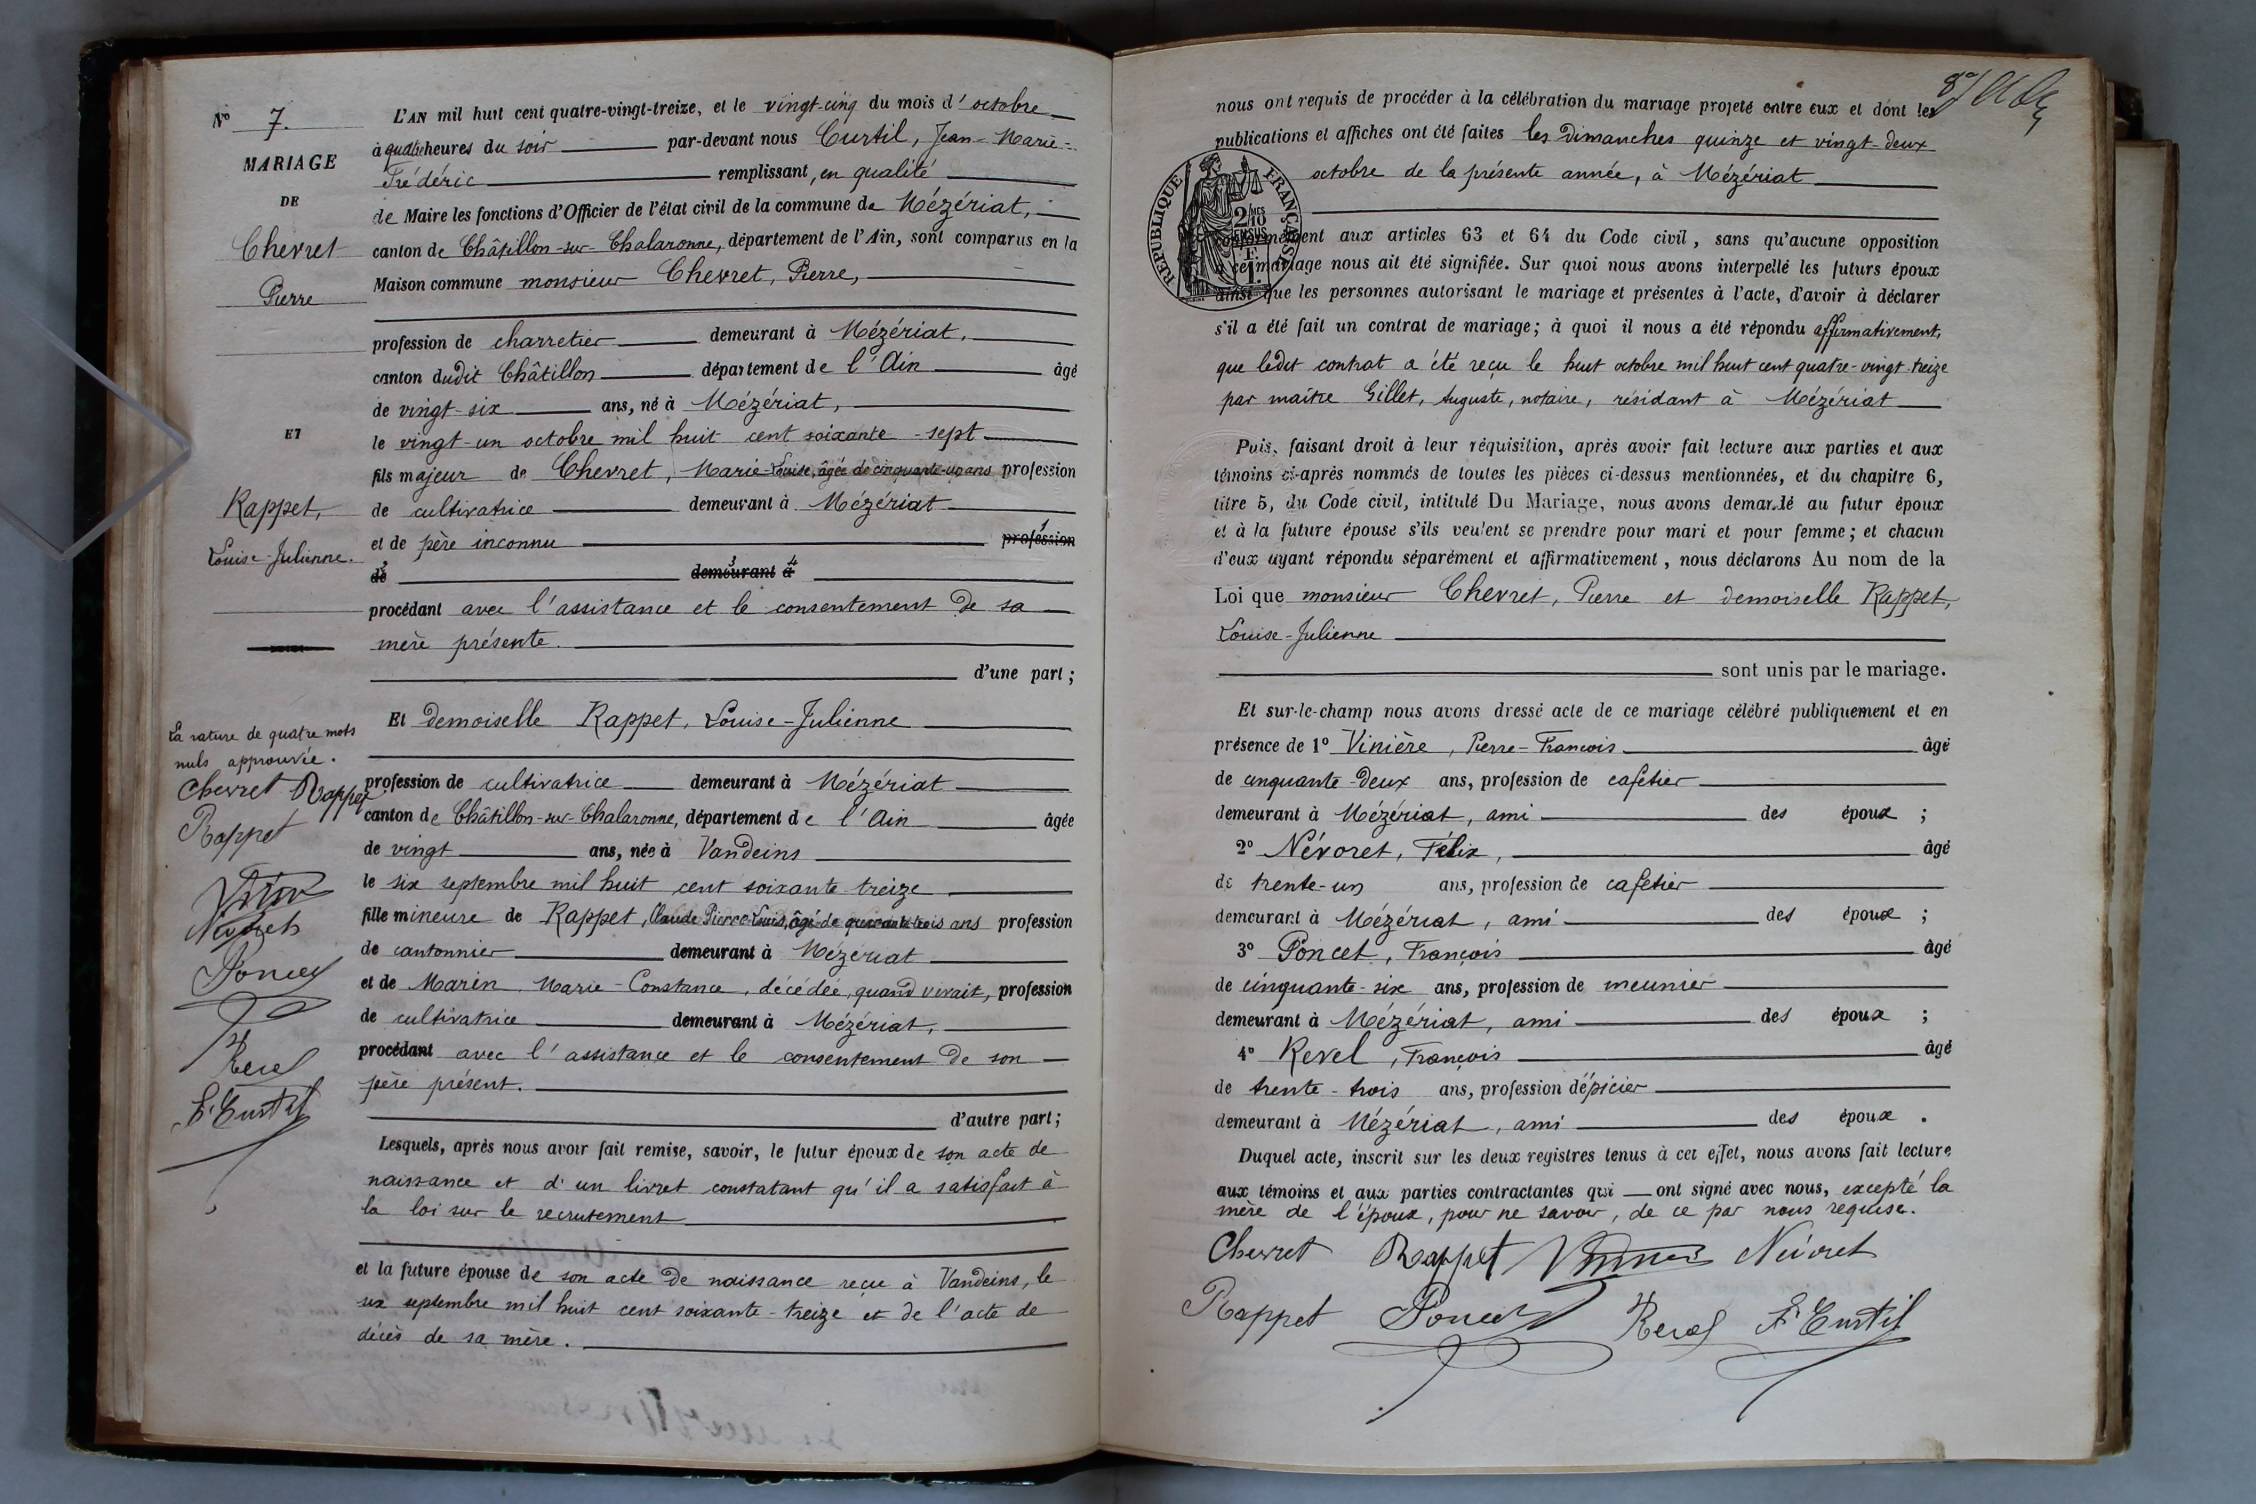 N° 7.
MARIAGE
DE
Chevret
Pierre
ET
Rappet,
Louise-Julienne.
La rature de quatre mots
nuls approuvée.
Chevret Rappet
Rappet
Névoret
Poncet
Revel
F. Curtil
L'AN mil huit cent quatre-vingt-treize, et le vingt-cinq du mois d'octobre
à quatre heures du soir par-devant nous Curtil, Jean-Marie-
Frédéric remplissant, en qualité
de Maire les fonctions d'Officier de l'état civil de la commune de Mézériat,
canton de Châtillon-sur-Chalaronne, département de l'Ain, sont comparus en la
Maison commune monsieur Chevret, Pierre,
profession de charretier demeurant à Mézériat,
canton dudit Châtillon département de l'Ain âgé
de vingt-six ans, né à Mézériat,
le vingt-un octobre mil huit cent soixante-sept
fils majeur de Chevret, Marie-Louise, âgée de cinquante-un ans profession
de cultivatrice demeurant à Mézériat
et de père inconnu profession 1
de 2 demeurant 3 à 4
procédant avec l'assistance et le consentement de sa
mère présente.
d'une part ;
Et demoiselle Rappet, Louise-Julienne
profession de cultivatrice demeurant à Mézériat
canton de Châtillon-sur-Chalaronne, département de l'Ain âgée
de vingt ans, née à Vandeins
le six septembre mil huit cent soixante treize
fille mineure de Rappet, Claude Pierre-Louis, âgé de quarante-trois ans profession
de cantonnier demeurant à Mézériat
et de Marin Marie-Constance, décédée, quand vivait, profession
de cultivatrice demeurant à Mézériat,
procédant avec l'assistance et le consentement de son
père présent.
d'autre part ;
Lesquels, après nous avoir fait remise, savoir, le futur époux de son acte de
naissance et d'un livret constatant qu'il a satisfait à
la loi sur le recrutement
et la future épouse de son acte de naissance reçu à Vandeins, le
six septembre mil huit cent soixante-treize et de l'acte de
décès de sa mère.
nous ont requis de procéder à la célébration du mariage projeté entre eux et dont les
publications et affiches ont été faites les dimanches quinze et vingt-deux
octobre de la présente année, à Mézériat
RÉPUBLIQUE FRANÇAISE
conformément aux articles 63 et 64 du Code civil, sans qu'aucune opposition
à ce mariage nous ait été signifiée. Sur quoi nous avons interpellé les futurs époux
ainsi que les personnes autorisant le mariage et présentes à l'acte, d'avoir à déclarer
s'il a été fait un contrat de mariage ; à quoi il nous a été répondu affirmativement,
que ledit contrat a été reçu le huit octobre mil huit cent quatre-vingt treize
par maître Gillet, Auguste, notaire, résidant à Mézériat
Puis, faisant droit à leur réquisition, après avoir fait lecture aux parties et aux
témoins ci-après nommés de toutes les pièces ci-dessus mentionnées, et du chapitre 6,
titre 5, du Code civil, intitulé Du Mariage, nous avons demandé au futur époux
et à la future épouse s'ils veulent se prendre pour mari et pour femme ; et chacun
d'eux ayant répondu séparément et affirmativement, nous déclarons Au nom de la
Loi que monsieur Chevret, Pierre et demoiselle Rappet,
Louise-Julienne
sont unis par le mariage.
Et sur-le-champ nous avons dressé acte de ce mariage célébré publiquement et en
présence de 1° Vinière, Pierre-François âgé
de cinquante-deux ans, profession de cafetier
demeurant à Mézériat, ami des époux ;
2° Névoret, Félix, âgé
de trente-un ans, profession de cafetier
demeurant à Mézériat, ami des époux ;
3° Poncet, François âgé
de cinquante-six ans, profession de meunier
demeurant à Mézériat, ami des époux ;
4° Revel, François âgé
de trente-trois ans, profession d'épicier
demeurant à Mézériat, ami des époux.
Duquel acte, inscrit sur les deux registres tenus à cet effet, nous avons fait lecture
aux témoins et aux parties contractantes qui ont signé avec nous, excepté la
mère de l'époux, pour ne savoir, de ce par nous requise.
Chevret Rappet Névoret
Rappet Poncet Revel F. Curtil